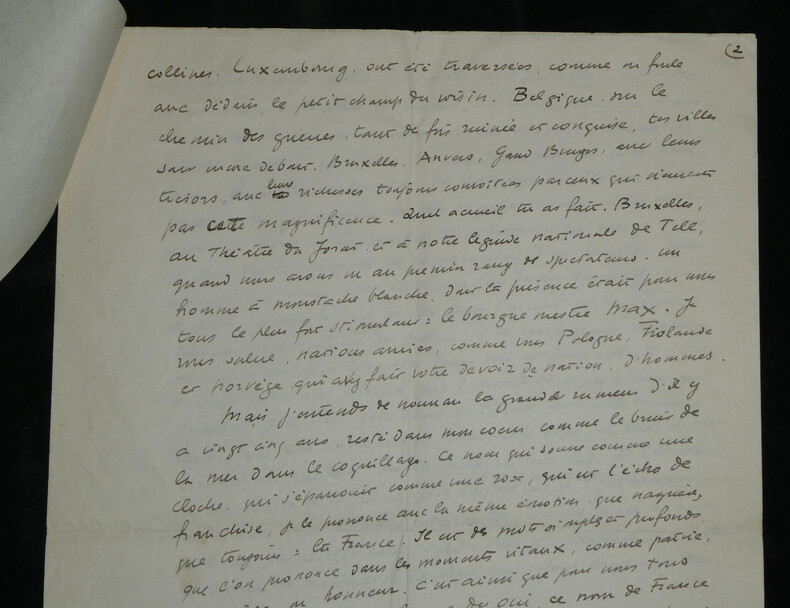 2
collines. Luxembourg, ont été traversées, comme on foule
avec dédain le petit champ du voisin. Belgique, sur le
chemin des guerres, tant de fois ruinée et conquise, tes villes
sont encore debout. Bruxelles, Anvers, Gand Bruges, avec leurs
trésors, avec leurs richesses toujours convoitées par ceux qui n'ont
pas cette magnificence. Quel accueil tu as fait. Bruxelles,
au Théâtre du Jorat et à notre légende nationale de Tell,
quand nous avons vu au premier rang de spectateurs un
homme à moustache blanche, dont la présence était pour nous
tous le plus fort stimulant : le bourgmestre Max. Je
vous salue, nations amies, comme vous Pologne, Finlande
et Norvège qui avez fait votre devoir de nation, d'hommes.
Mais j'entends de nouveau la grande rumeur d'il y
a vingt cinq ans, resté dans mon coeur comme le bruit de
la mer dans le coquillage. Ce nom qui sonne comme une
cloche, qui s'épanouit comme une rose, qui est l'écho de
franchise, je le prononce avec la même émotion que naguère,
que toujours : la France. Il est des mots simples et profonds
que l'on prononce dans les moments vitaux, comme patrie,
ou honneur. C'est ainsi que pour nous tous
du oui, ce nom de France